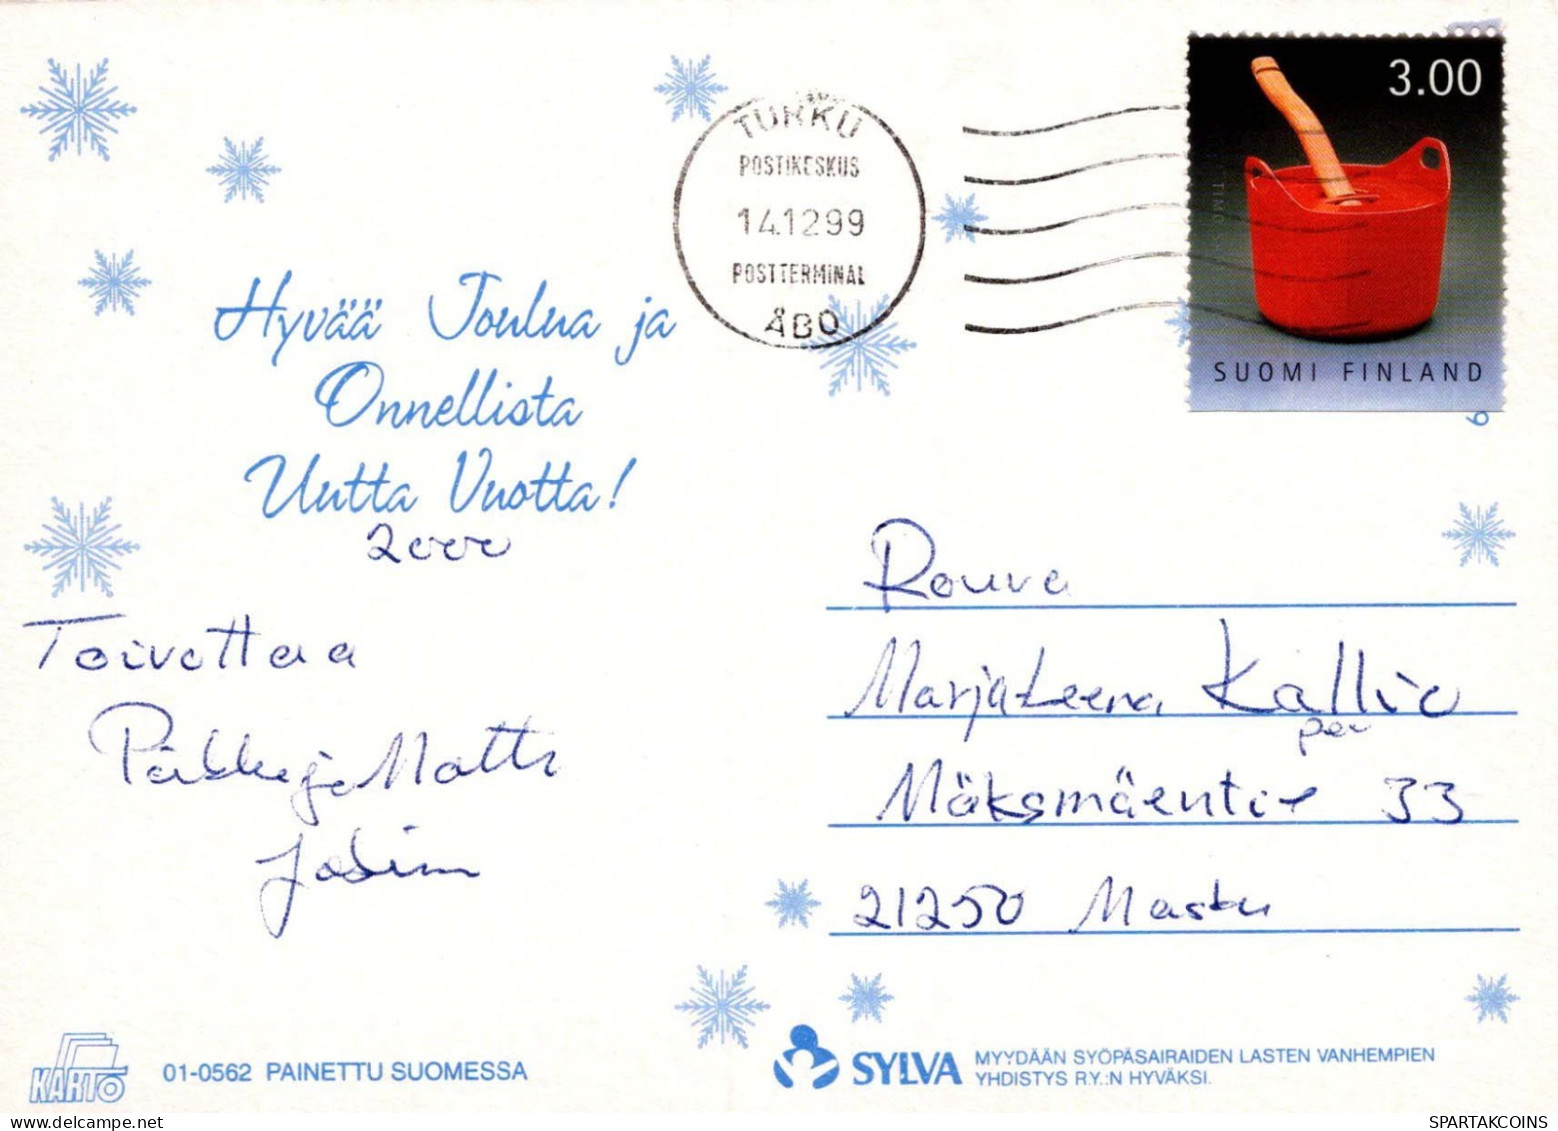 TURKU
POSTIKESKUS
14.12.99
POSTTERMINAL
ÅBO
3.00
SUOMI FINLAND
Hyvää Joulua ja
Onnellista
Uutta Vuotta!
2000
Toivottaa
Pirkko ja Matti
Rouva
MarjaLeena Kallio
per
Mäksmäentie 33
21250 Masku
KARTO
01-0562 PAINETTU SUOMESSA
SYLVA
MYYDÄÄN SYÖPÄSAIRAIDEN LASTEN VANHEMPIEN
YHDISTYS R.Y.:N HYVÄKSI.
SPARTAKCOINS